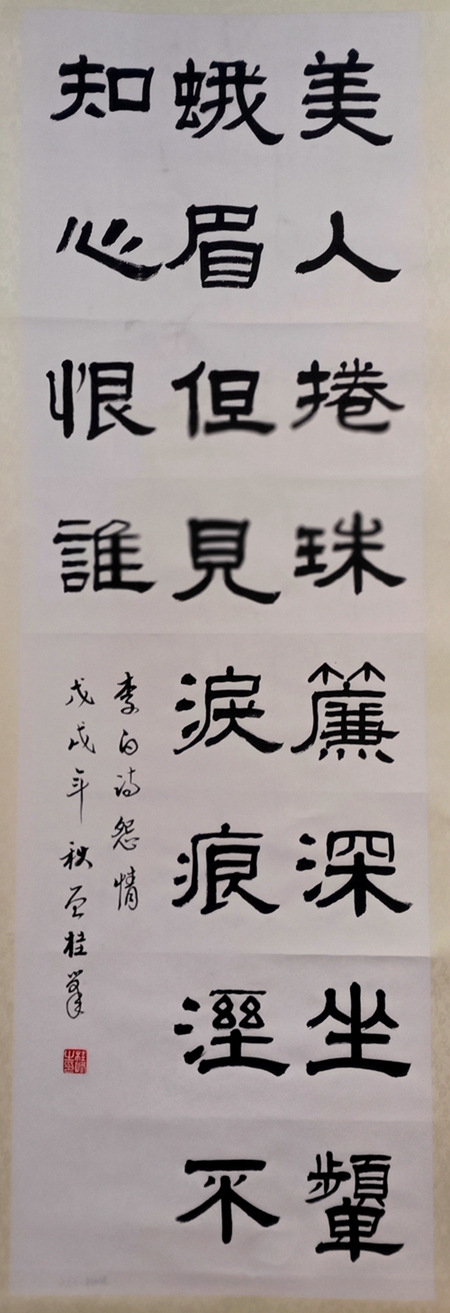 美人捲珠簾深坐顰
蛾眉但見淚痕溼不
知心恨誰
李白诗怨情
戊戌年秋桂